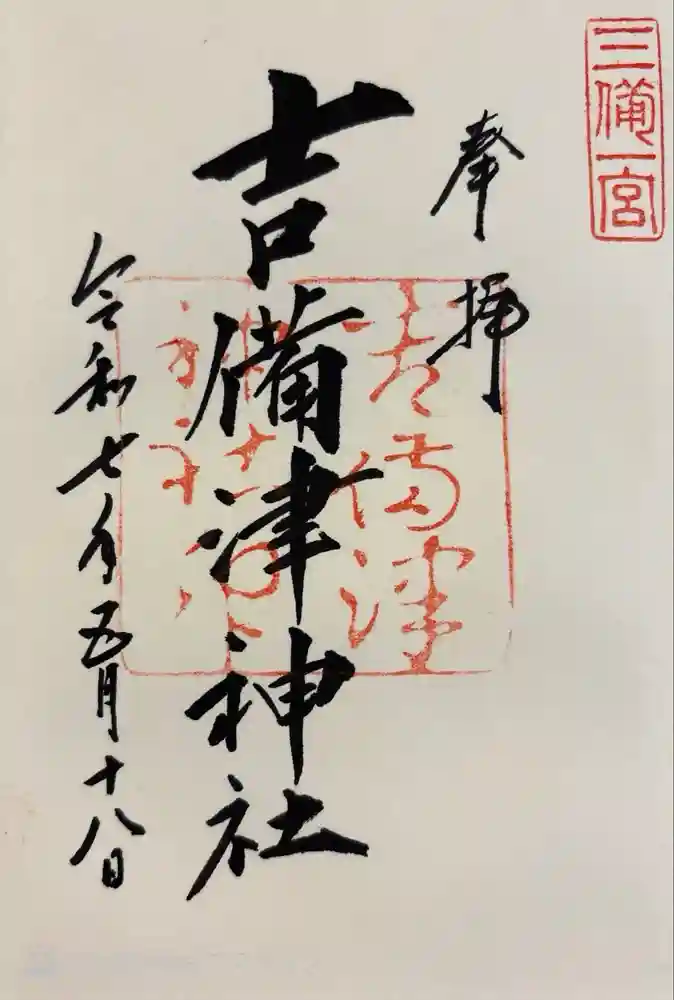 三備一宮
奉拝
吉備津神社
吉備津
令和七年五月十八日